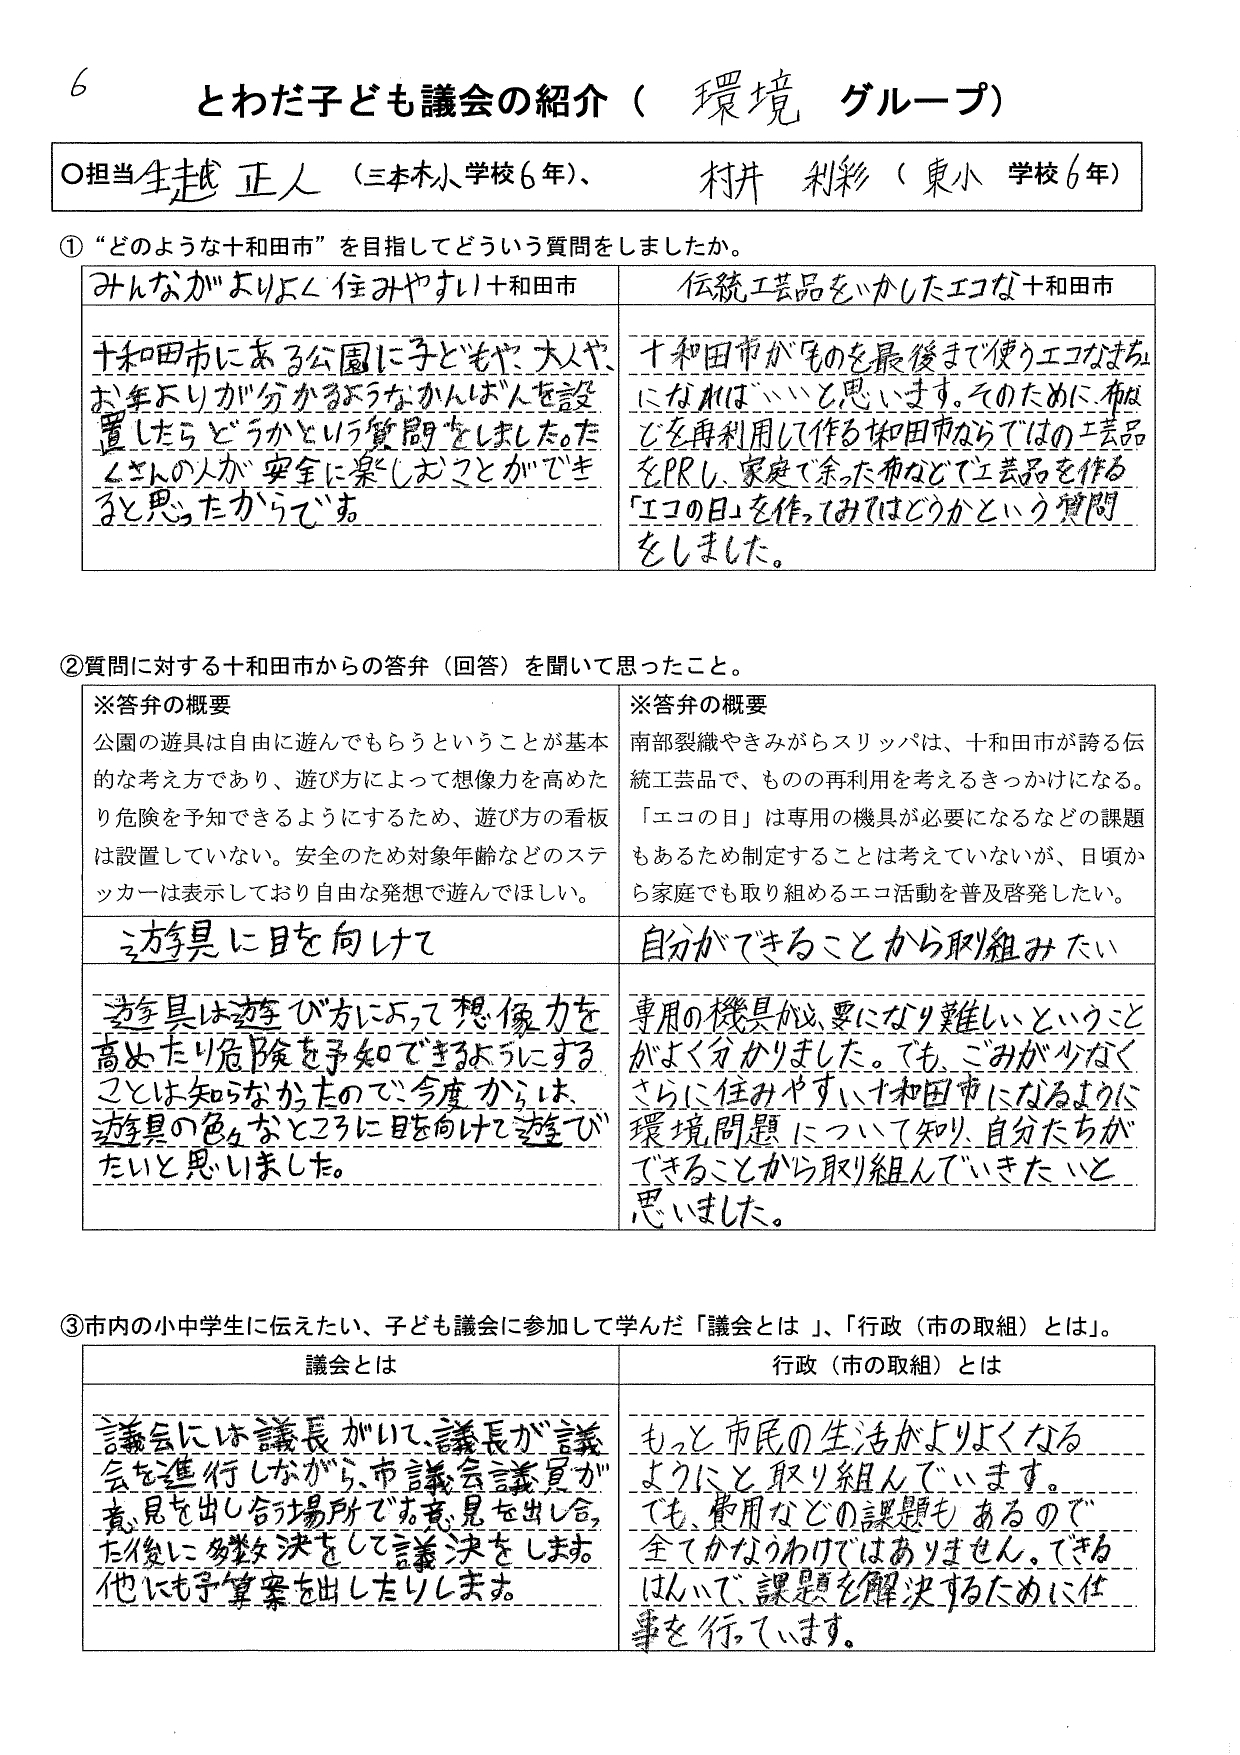 6
とわだ子ども議会の紹介（ 環境 グループ）
〇担当 生越 正人 （三本木小 学校6年）、 村井 利彩 （ 東小 学校6年）
①“どのような十和田市”を目指してどういう質問をしましたか。
みんながよりよく住みやすい十和田市
十和田市にある公園に子どもや、大人や、
お年よりが分かるようなかんばんを設
置したらどうかという質問をしました。た
くさんの人が安全に楽しむことができ
ると思ったからです。
伝統工芸品をいかしたエコな十和田市
十和田市が「ものを最後まで使うエコなまち」
になればいいと思います。そのために、布な
どを再利用して作る十和田市ならではの工芸品
をPRし、家庭で余った布などで工芸品を作る
「エコの日」を作ってみてはどうかという質問
をしました。
②質問に対する十和田市からの答弁（回答）を聞いて思ったこと。
※答弁の概要
公園の遊具は自由に遊んでもらうということが基本
的な考え方であり、遊び方によって想像力を高めた
り危険を予知できるようにするため、遊び方の看板
は設置していない。安全のため対象年齢などのステ
ッカーは表示しており自由な発想で遊んでほしい。
遊具に目を向けて
遊具は遊び方によって想像力を
高めたり危険を予知できるようにする
ことは知らなかったので、今度からは、
遊具の色々なところに目を向けて遊び
たいと思いました。
※答弁の概要
南部裂織やきみがらスリッパは、十和田市が誇る伝
統工芸品で、ものの再利用を考えるきっかけになる。
「エコの日」は専用の機具が必要になるなどの課題
もあるため制定することは考えていないが、日頃か
ら家庭でも取り組めるエコ活動を普及啓発したい。
自分ができることから取り組みたい
専用の機具が必要になり難しいということ
がよく分かりました。でも、ごみが少なく
さらに住みやすい十和田市になるように
環境問題について知り、自分たちが
できることから取り組んでいきたいと
思いました。
③市内の小中学生に伝えたい、子ども議会に参加して学んだ「議会とは 」、「行政（市の取組）とは」。
議会とは
議会には議長がいて、議長が議
会を進行しながら、市議会議員が
意見を出し合う場所です。意見を出し合っ
た後に多数決をして議決をします。
他にも予算案を出したりします。
行政（市の取組）とは
もっと市民の生活がよりよくなる
ようにと取り組んでいます。
でも、費用などの課題もあるので
全てかなうわけではありません。できる
はんいで、課題を解決するために仕
事を行っています。